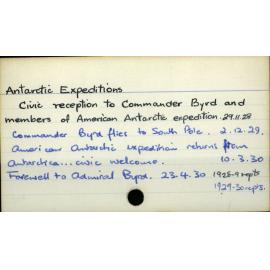 Antarctic Expeditions
Civic reception to Commander Byrd and
members of American Antarctic expedition. 29.11.28
Commander Byrd flies to South Pole. 2.12.29.
American Antarctic expedition returns from
Antarctica... civic welcome. 10.3.30
Farewell to Admiral Byrd. 23.4.30 1928-9 repts
1929-30 repts.